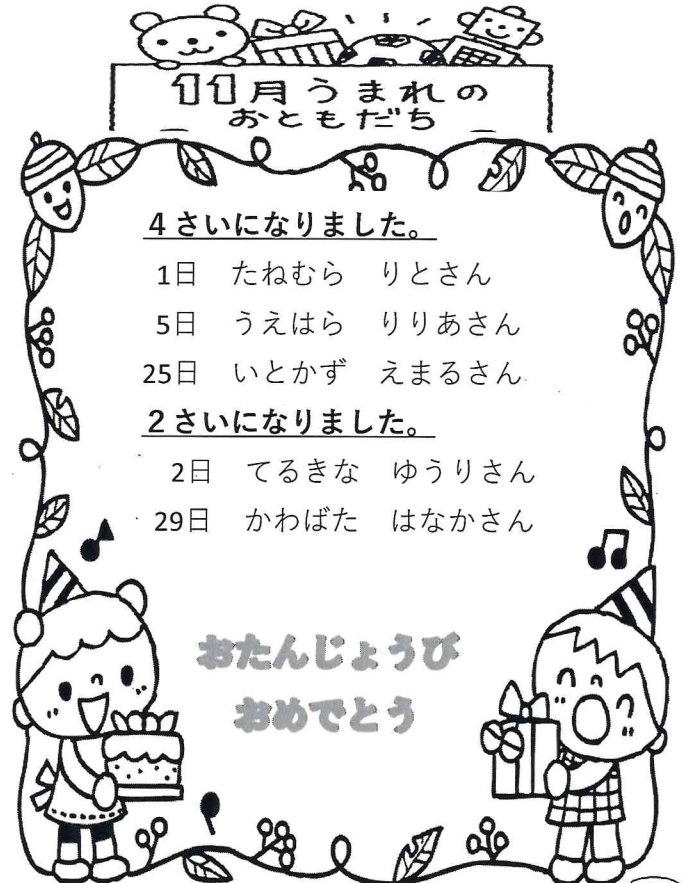 11月うまれの
おともだち
４さいになりました。
1日　たねむら　りとさん
5日　うえはら　りりあさん
25日　いとかず　えまるさん
２さいになりました。
2日　てるきな　ゆうりさん
29日　かわばた　はなかさん
おたんじょうび
おめでとう